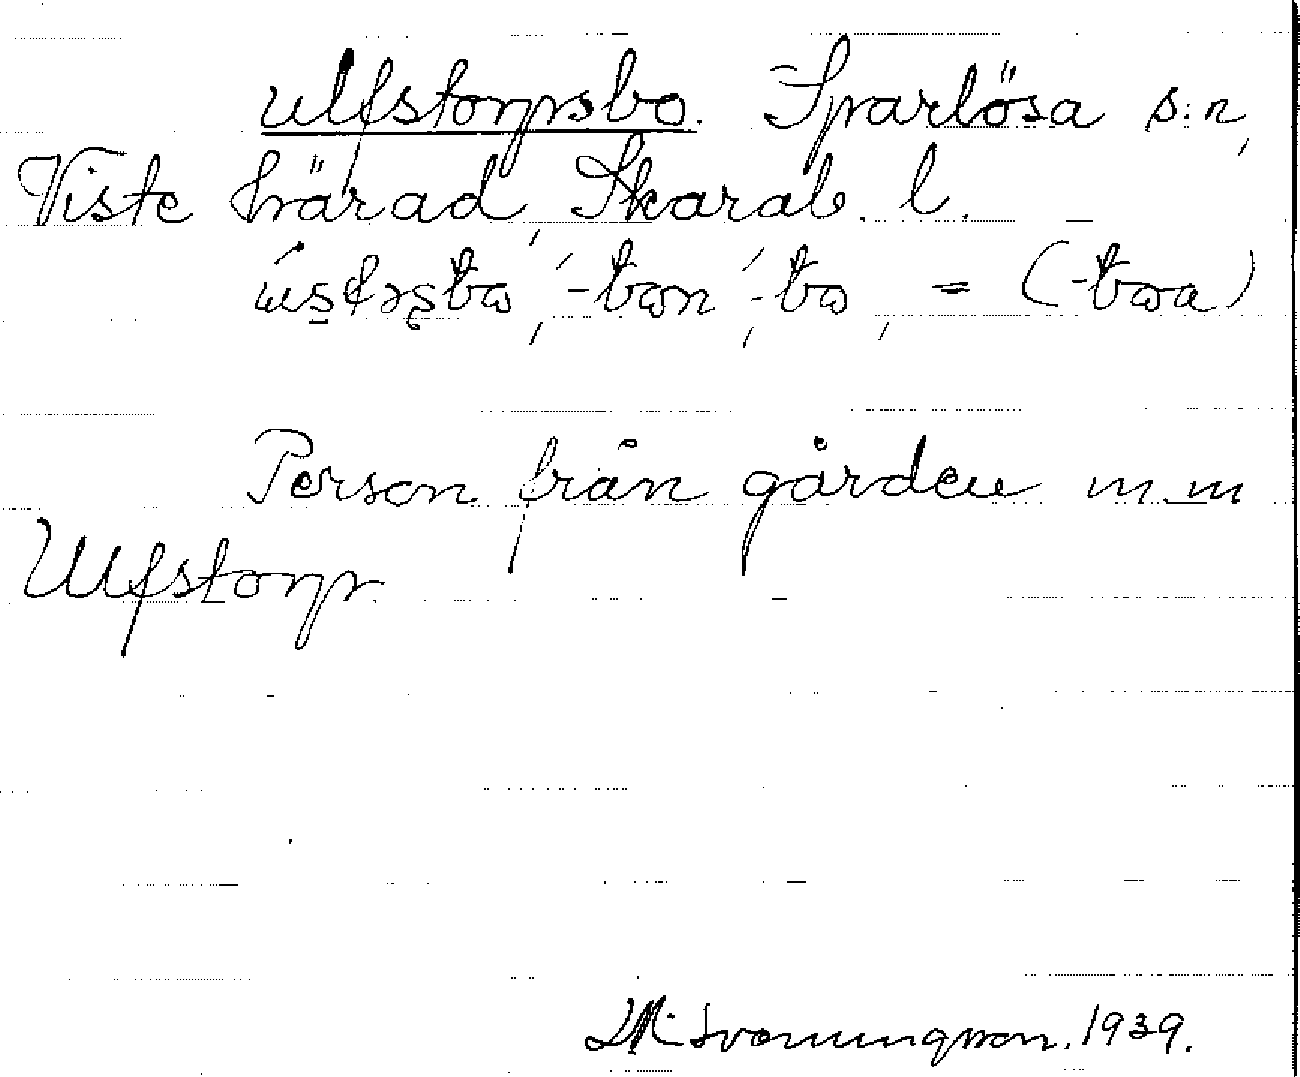 ulfstorpsbo. Sparlösa s:n,
Viste härad, Skarab. l.
-bon, -bo, = (-boa)
Person från gården m m
Ulfstorp.
1939.